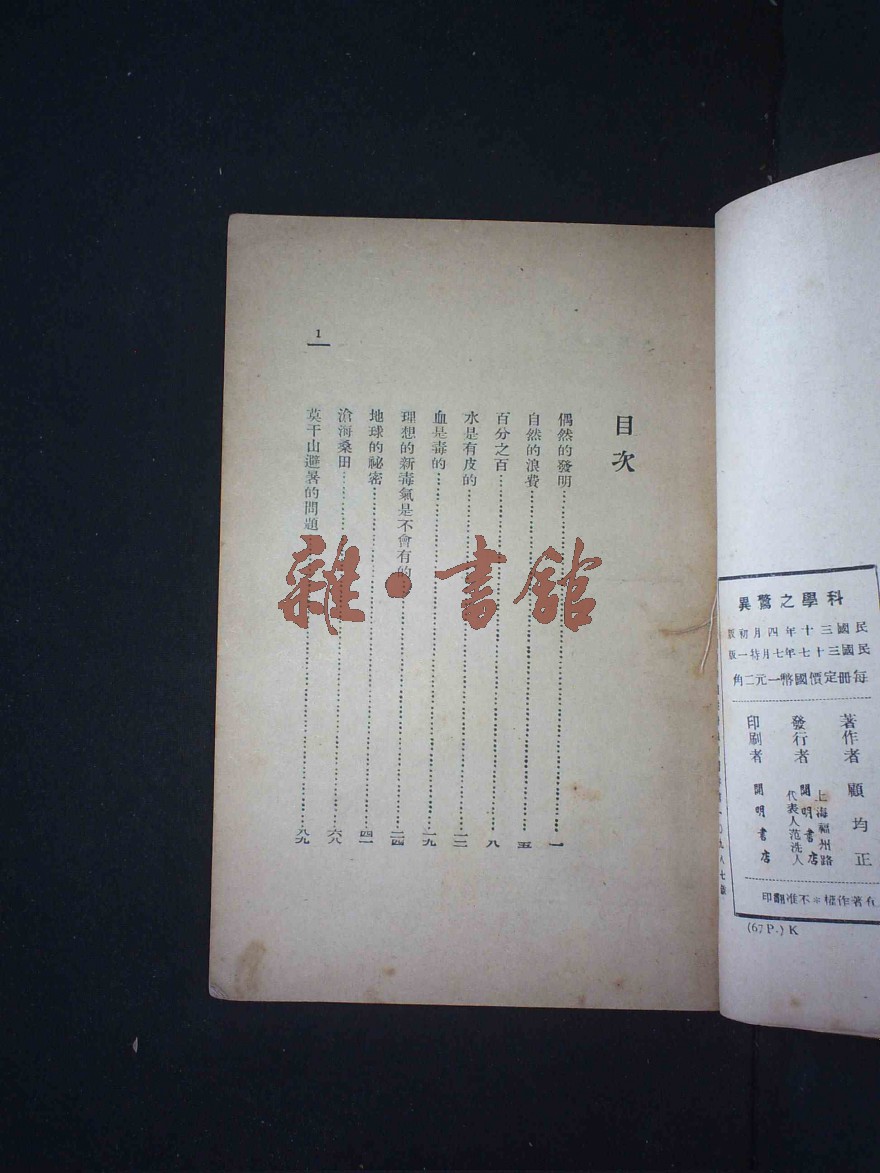 科學之驚異
民國三十年四月初版
民國三十七年七月特一版
每册定價國幣一元二角
著作者 顧均正
發行者 上海福州路 開明書店 代表人范洗人
印刷者 開明書店
有著作權＊不准翻印
(67 P.) K
目次
偶然的發明 一
自然的浪費 五
百分之百 八
水是有皮的 一二
血是毒的 一九
理想的新毒氣是不會有的 二四
地球的祕密 四一
滄海桑田 六八
莫干山避暑的問題 八九
1
雜·書館